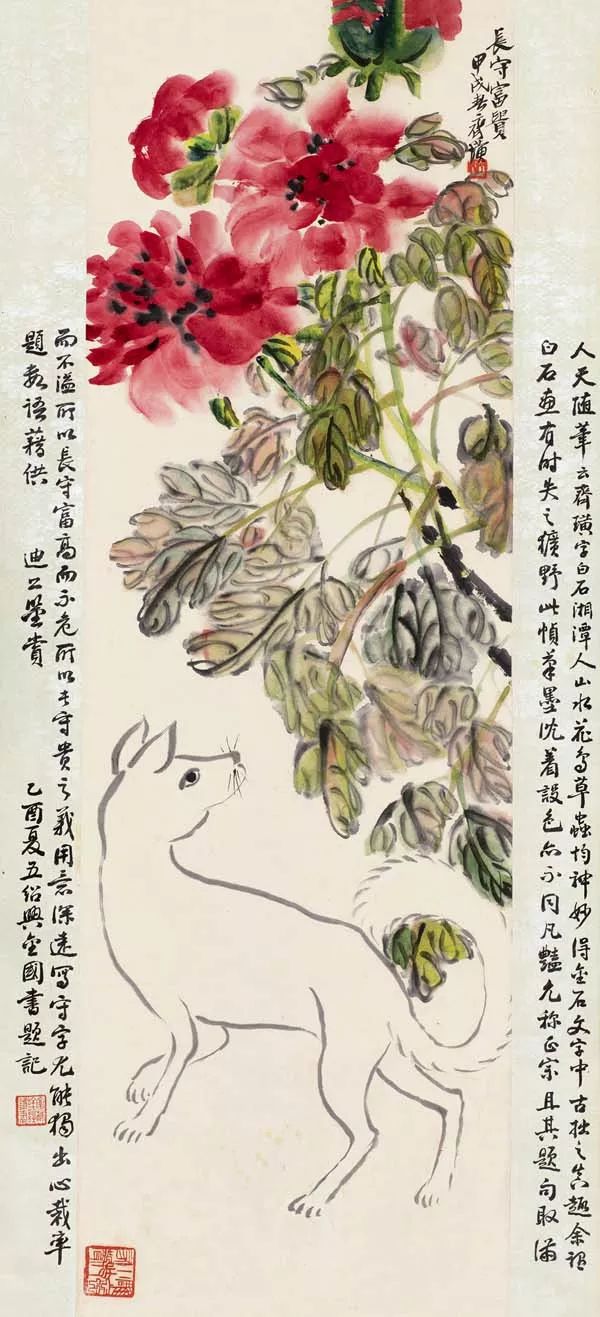 長守富貴
甲戌春齊璜
人天随筆云齊璜字白石湘潭人山水花鳥草蟲均神妙得金石文字中古拙之真趣余謂
白石畫有時失之獷野此幀筆墨沈着設色亦不同凡豔尤称正宗且其題句取滿
而不溢所以長守富高而不危所以長守貴之義用意深遠寫守字尤能獨出心裁率
題數語藉供 迪公鑒賞 乙酉夏五紹興金國書題記